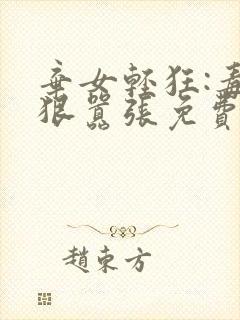 棄女輕狂:毒
狠囂張免費
趙東方